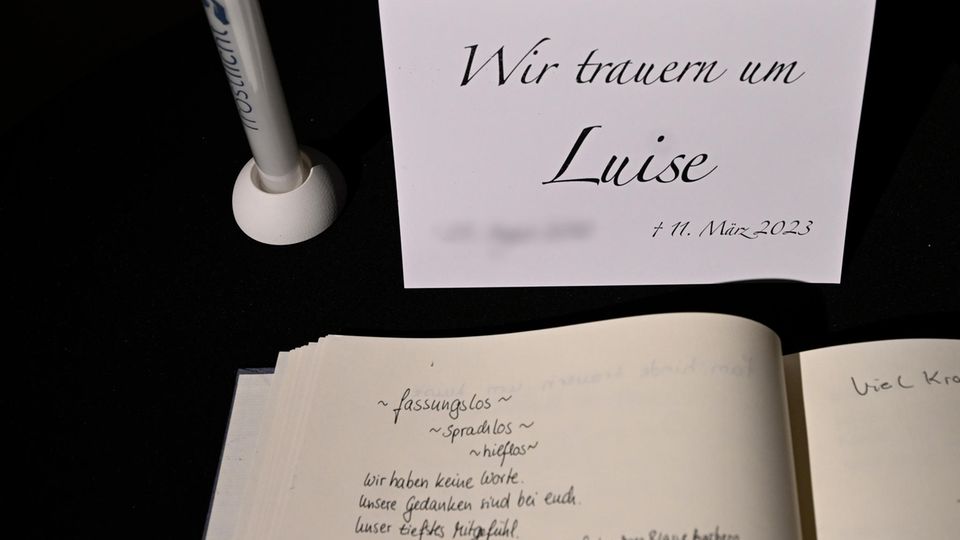 Trostlicht
Wir trauern um
Luise
† 11. März 2023
~ fassungslos ~
~ sprachlos ~
~ hilflos ~
wir haben keine Worte.
unsere Gedanken sind bei euch.
unser tiefstes Mitgefühl.
Viel Kra